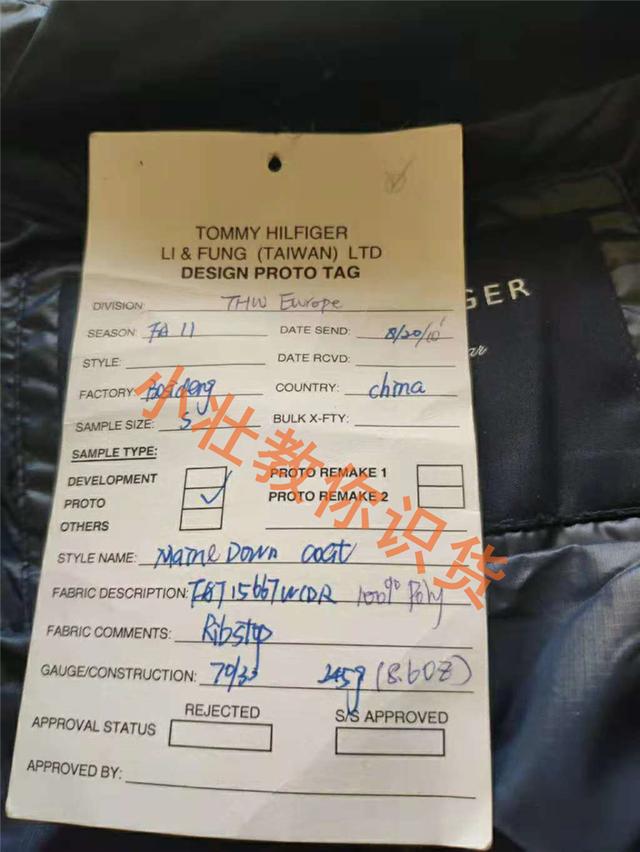 TOMMY HILFIGER
LI & FUNG (TAIWAN) LTD
DESIGN PROTO TAG
DIVISION: THW Europe
SEASON: FA 11 DATE SEND: 8/20/10
STYLE: DATE RCVD:
FACTORY: Bosideng COUNTRY: China
SAMPLE SIZE: S BULK X-FTY:
SAMPLE TYPE:
DEVELOPMENT PROTO REMAKE 1
PROTO PROTO REMAKE 2
OTHERS
STYLE NAME: Down coat
FABRIC DESCRIPTION: 100% Poly
FABRIC COMMENTS: Ribstop
GAUGE/CONSTRUCTION: 245g (8.60Z)
REJECTED S/S APPROVED
APPROVAL STATUS
APPROVED BY:
GER
小壮教你识货